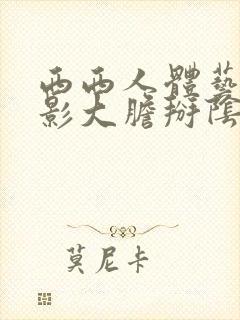 西西人體藝
影大膽掰陰
莫尼卡